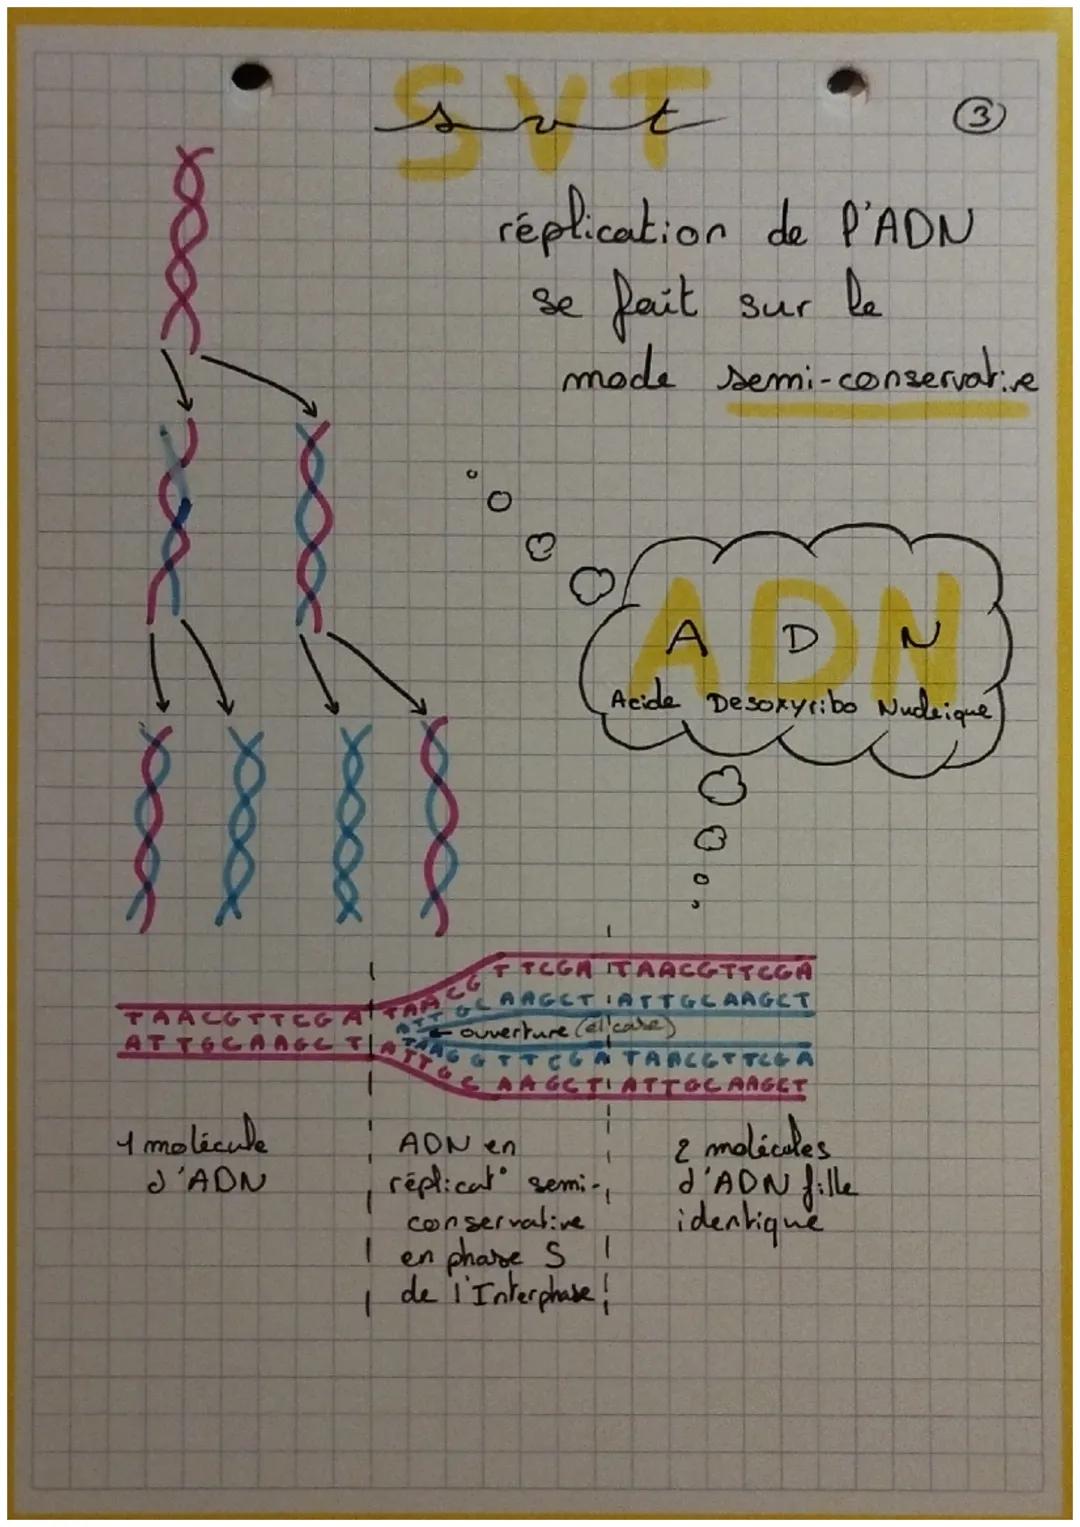 SVT
svt
3
réplication de l'ADN
se fait sur le
mode semi-conservative
ADN
A D N
Acide Desoxyribo Nucleique
TAACGTTCGA
ATTGCAAGCT
TAACGTTCGA TAACGTTCGA
ATTGCAAGCT ATTGCAAGCT
ouverture
TAACGTTCGA
ATTGCAAGCT ATTGCAAGCT
1 molécule
d'ADN
ADN en
réplicat° semi-
conservative
en phase S
de l'Interphase
2 molécules
d'ADN fille
identique